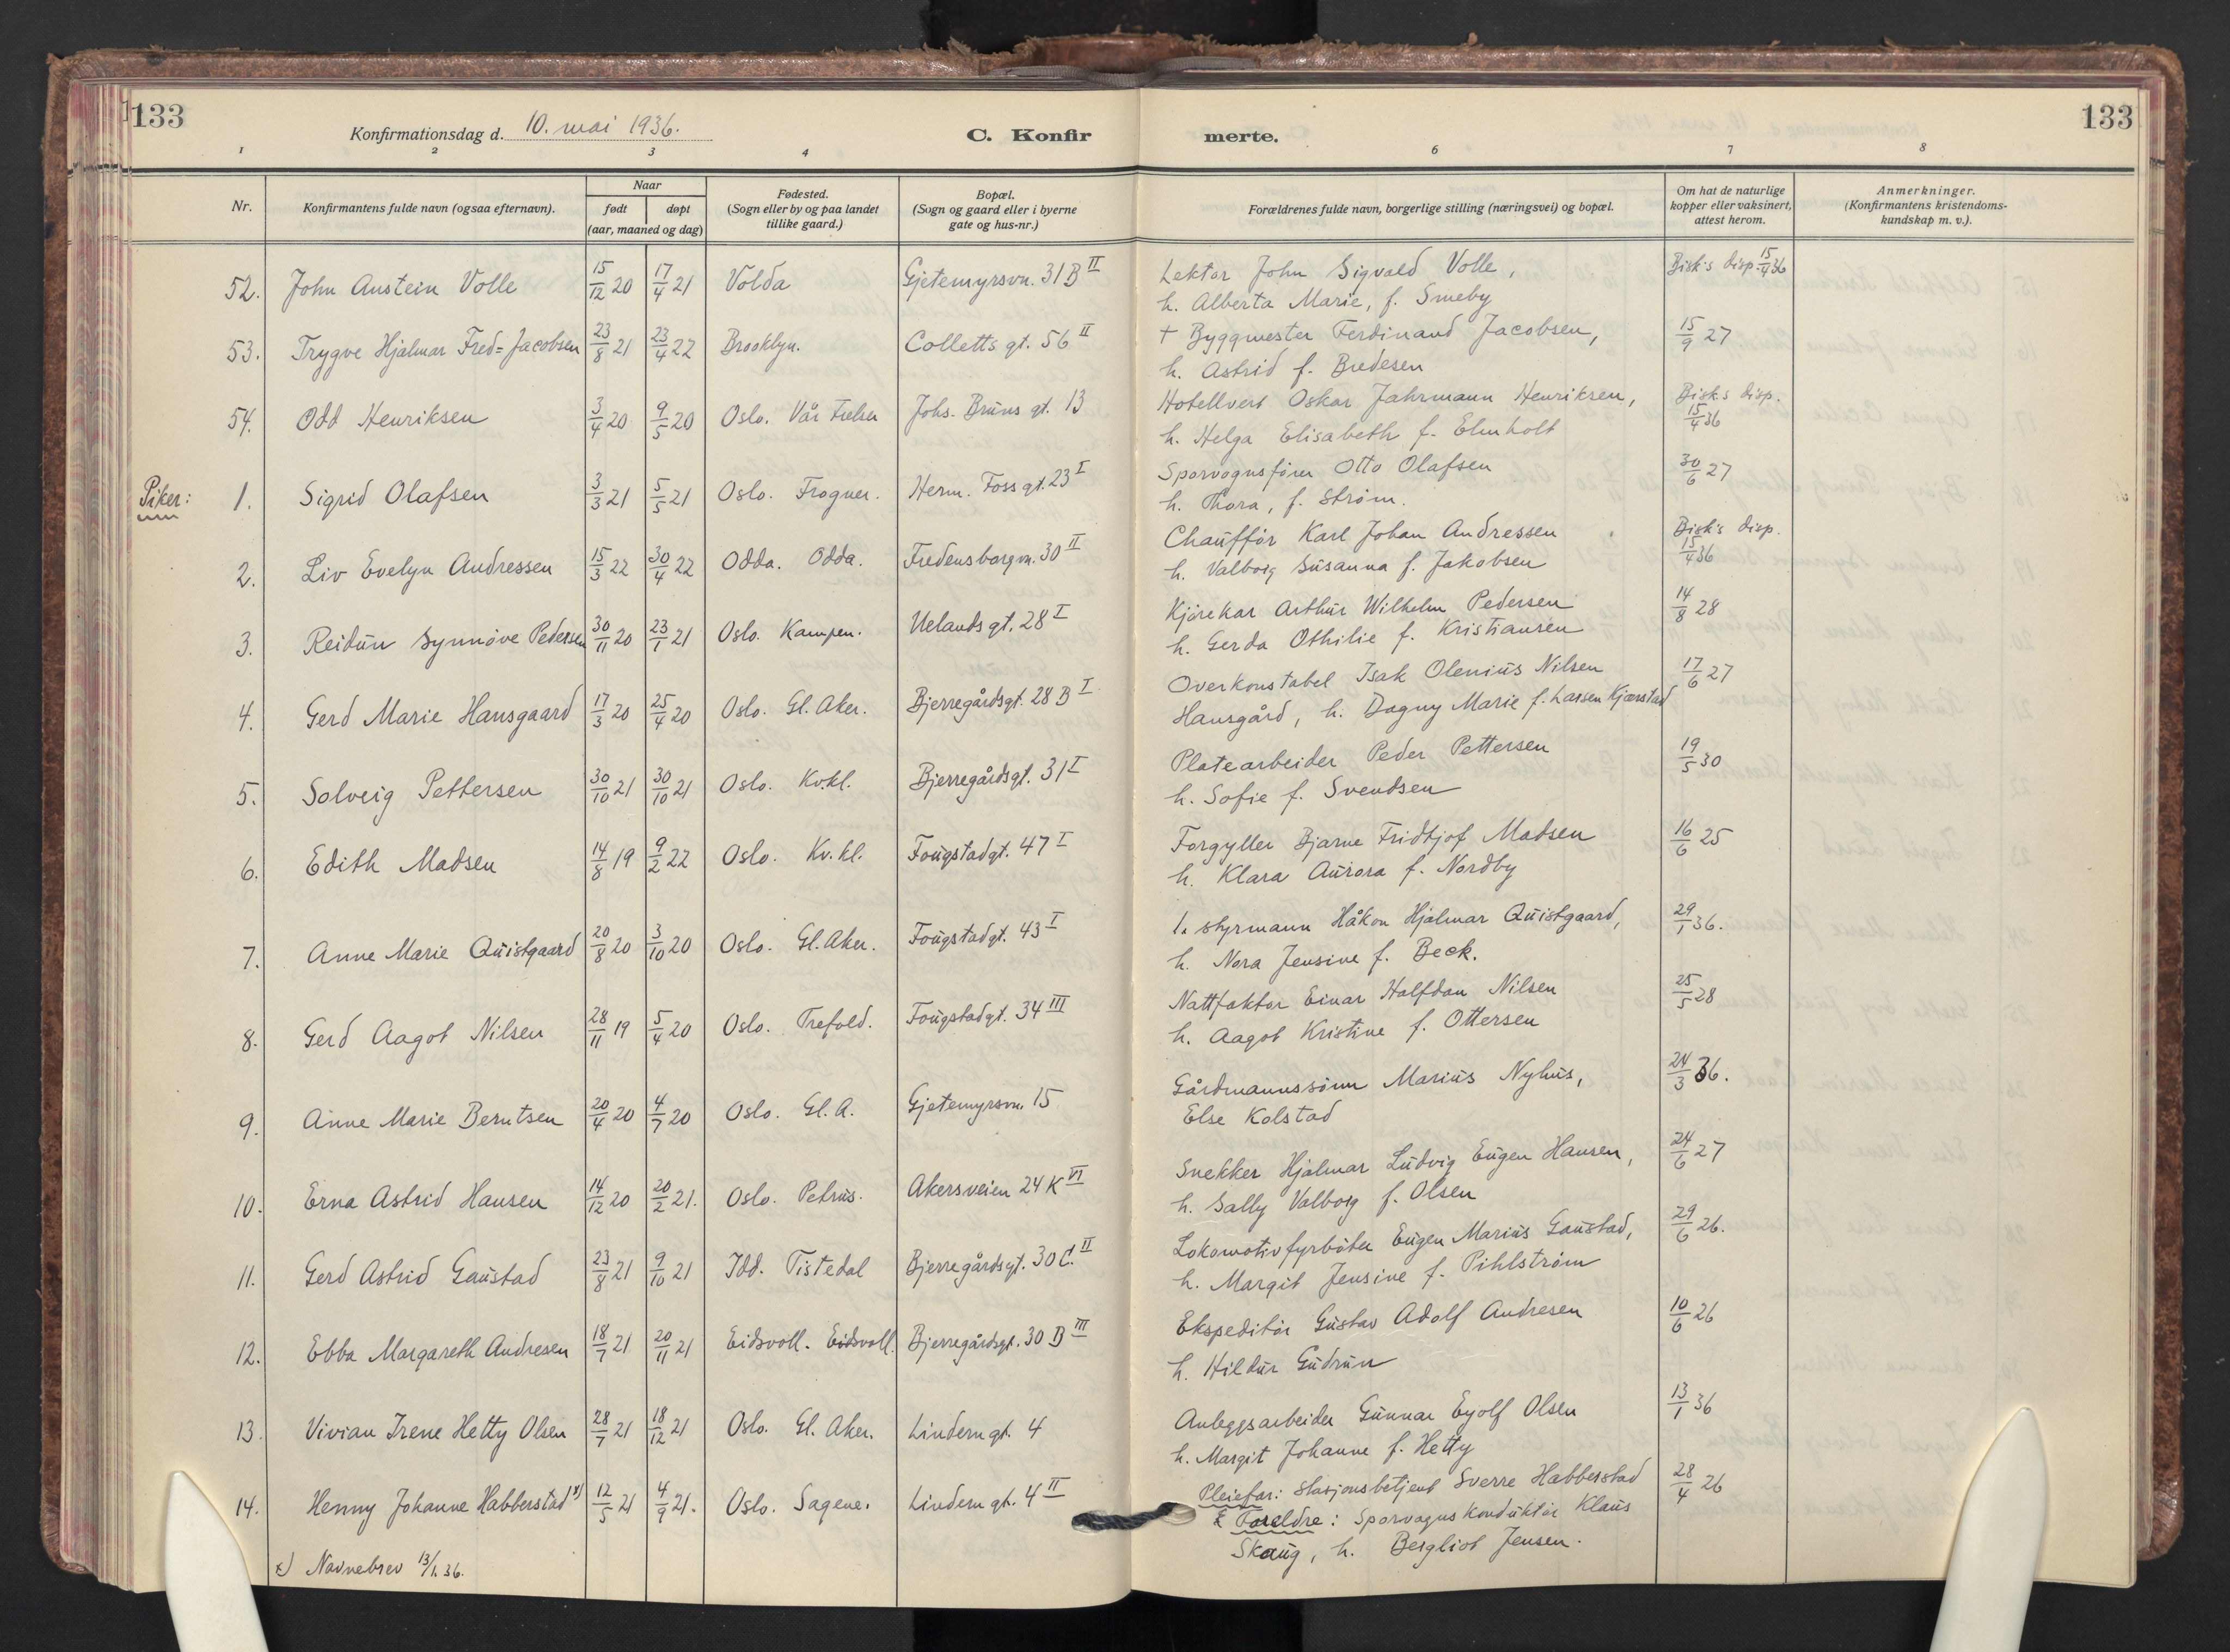 133
133
Konfirmationsdag d. 10. mai 1936.
C. Konfir
merte.
1 2 3 4 6 7 8
Nr.
Konfirmantens fulde navn (ogsaa efternavn).
Naar
født døpt
(aar, maaned og dag)
Fødested.
(Sogn eller by og paa landet
tillike gaard.)
Bopæl.
(Sogn og gaard eller i byerne
gate og hus-nr.)
Forældrenes fulde navn, borgerlige stilling (næringsvei) og bopæl.
Om hat de naturlige
kopper eller vaksinert,
attest herom.
Anmerkninger.
(Konfirmantens kristendoms-
kundskap m. v.).
52. John Austein Volle 15/12 20 17/4 21 Volda Gjetemyrsvn. 31 B II Lektor John Sigvald Volle, Bisk's disp. 15/4 36
h. Alberta Marie, f. Smeby
53. Trygve Hjalmar Fred= Jacobsen 23/8 21 23/4 22 Brooklyn. Colletts gt. 56 II + Byggmester Ferdinand Jacobsen, 15/9 27
h. Astrid f. Bredesen
54. Odd Henriksen 3/4 20 9/5 20 Oslo. Vår Frelser Johs. Bruns gt. 13 Hotellvert Oskar Jahrmann Henriksen, Bisk's disp.
15/4 36
h. Helga Elisabeth f. Elmholt
Piker: 1. Sigrid Olafsen 3/3 21 5/5 21 Oslo. Frogner. Herm. Foss gt. 23 I Sporvognsfører Otto Olafsen 30/6 27
h. Thora, f. Strøm.
2. Liv Evelyn Andressen 15/3 22 30/4 22 Odda. Odda. Fredensborgvn. 30 II Chauffør Karl Johan Andressen Bisk's disp.
15/4 36
h. Valborg Susanna f. Jakobsen
3. Reidun Synnøve Pedersen 30/11 20 23/1 21 Oslo. Kampen. Uelands gt. 28 I Kjørekar Arthur Wilhelm Pedersen 14/8 28
h. Gerda Othilie f. Kristiansen
4. Gerd Marie Hansgaard 17/3 20 25/4 20 Oslo. Gl. Aker. Bjerregårdsgt. 28 B I Overkonstabel Isak Olenius Nilsen 17/6 27
Hansgård, h. Dagny Marie f. Larsen Kjærstad
5. Solveig Pettersen 30/10 21 30/10 21 Oslo. Kv.kl. Bjerregårdsgt. 31 I Platearbeider Peder Pettersen 19/5 30
h. Sofie f. Svendsen
6. Edith Madsen 14/8 19 9/2 22 Oslo. Kv. kl. Fougstadgt. 47 I Forgyller Bjarne Fridtjof Madsen 16/6 25
h. Klara Aurora f. Nordby
7. Anne Marie Quistgaard 20/8 20 3/10 20 Oslo. Gl. Aker. Fougstadgt. 43 I 1. styrmann Håkon Hjalmar Quistgaard, 29/1 36.
h. Nora Jensine f. Beck.
8. Gerd Aagot Nilsen 28/11 19 5/4 20 Oslo. Trefold. Fougstadgt. 34 III Nattfaktor Einar Halfdan Nilsen 25/5 28
h. Aagot Kristine f. Ottersen
9. Anne Marie Berntsen 20/4 20 4/7 20 Oslo. Gl. A. Gjetemyrsvn. 15 Gårdmannssønn Marius Nyhus, 24/3 36.
Else Kolstad
10. Erna Astrid Hansen 14/12 20 20/2 21. Oslo. Petrus. Akersveien 24 K VI Snekker Hjalmar Ludvig Eugen Hansen, 24/6 27
h. Sally Valborg f. Olsen
11. Gerd Astrid Gaustad 23/8 21 9/10 21 Idd. Tistedal Bjerregårdsgt. 30 C. II Lokomotivfyrbøter Eugen Marius Gaustad, 29/6 26.
h. Margit Jensine f. Pihlstrøm
12. Ebba Margareth Andresen 18/7 21 20/11 21 Eidsvoll. Eidsvoll. Bjerregårdsgt. 30 B III Ekspeditør Gustav Adolf Andresen 10/6 26
h. Hildur Gudrun
13. Vivian Irene Hetty Olsen 28/7 21 18/12 21 Oslo. Gl. Aker. Linderngt. 4 Anleggsarbeider Gunnar Eyolf Olsen 13/1 36
h. Margit Johanne f. Hetty
14. Henny Johanne Habberstad x) 12/5 21 4/9 21. Oslo. Sagene. Lindern gt. 4 II Pleiefar: Stasjonsbetjent Sverre Habberstad 28/4 26
Foreldre: Sporvognskonduktør Klaus
Skaug, h. Bergliot Jensen.
x) Navnebrev 13/1.36.